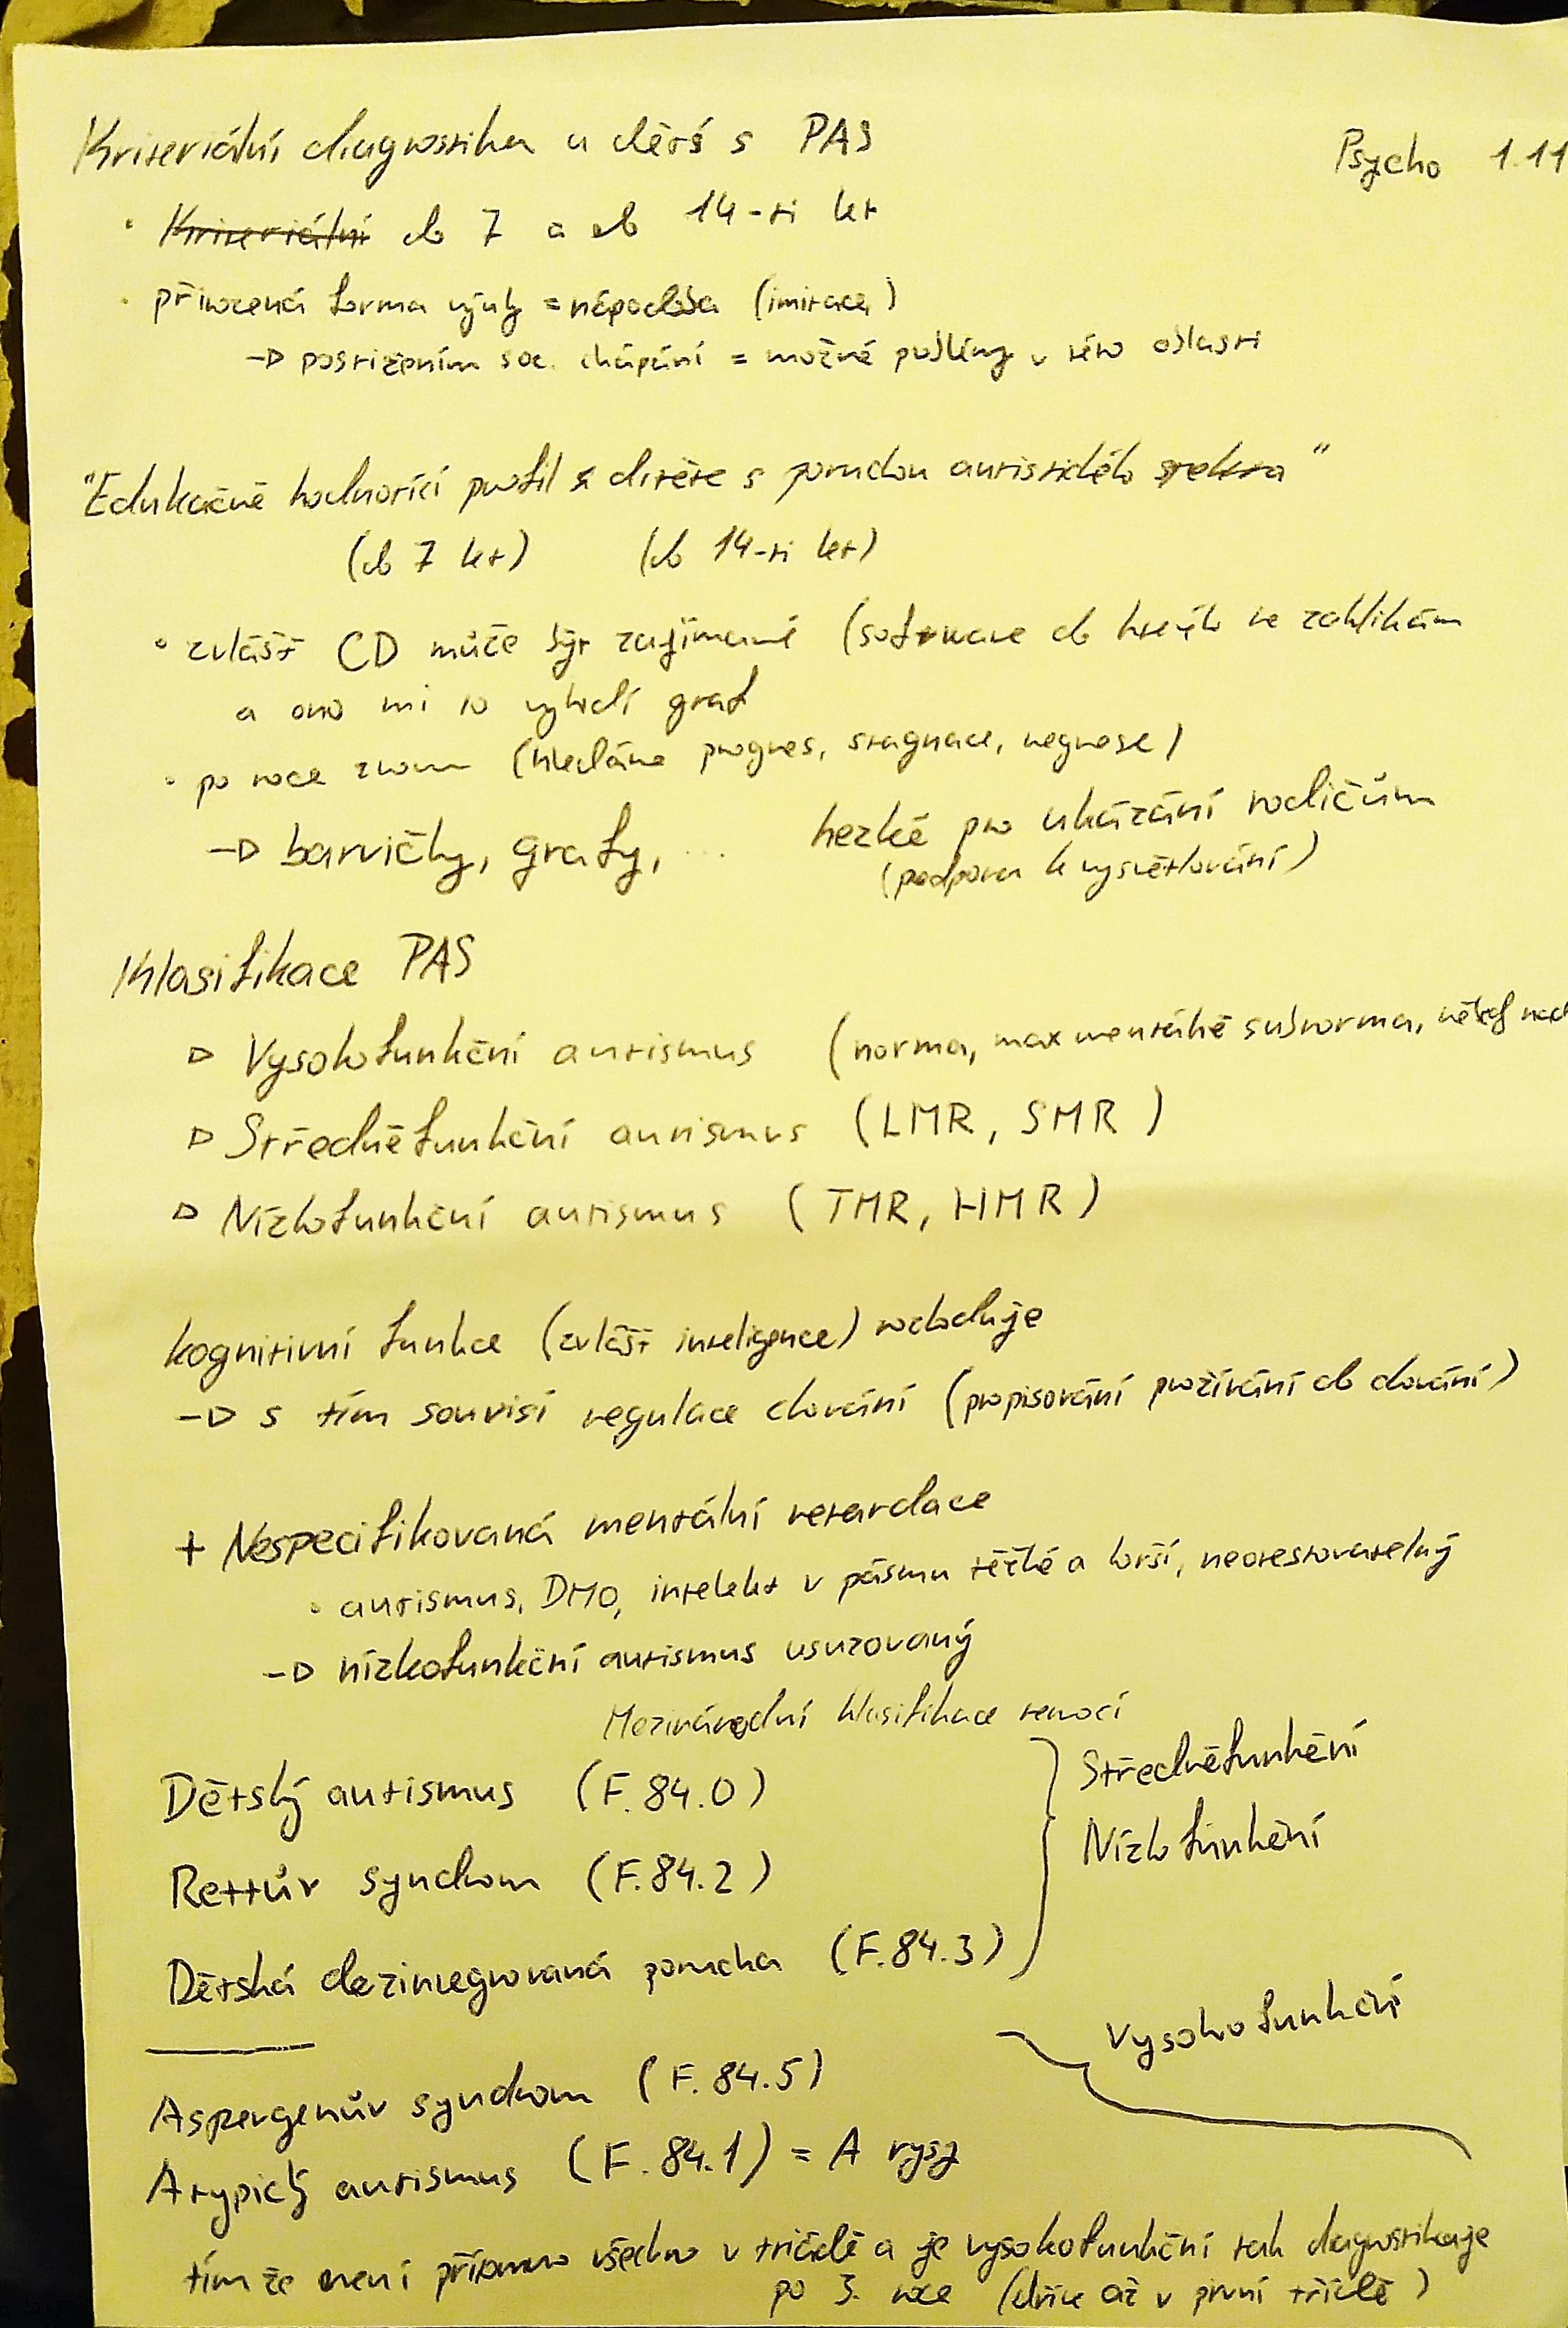 Kriteriální diagnostika u dětí s PAS
Psycho 1.11
• Kriteriální do 7 a do 14-ti let
• přirozená forma výuky = nápodoba (imitace)
→ postižením soc. chápání = možné problémy v této oblasti
"Edukačně hodnotící profil dítěte s poruchou autistického spektra"
(do 7 let) (do 14-ti let)
• zvlášť CD může být zajímavé (software do kterýho to zaklikám
a ono mi to vyhodí graf
• po roce znovu (hledáme progres, stagnace, regrese)
→ barvičky, grafy, ... hezké pro ukázání rodičům
(podpora k vysvětlování)
Klasifikace PAS
▷ Vysokofunkční autismus (norma, max mentálně subnorma, někdy nad
▷ Středněfunkční autismus (LMR, SMR)
▷ Nízkofunkční autismus (TMR, HMR)
kognitivní funkce (zvlášť inteligence) rozhoduje
→ s tím souvisí regulace chování (propisování prožívání do chování)
+ Nespecifikovaná mentální retardace
• autismus, DMO, intelekt v pásmu těžké a horší, neotestovatelný
→ nízkofunkční autismus usuzovaný
Mezinárodní klasifikace nemocí
Dětský autismus (F.84.0)
Rettův syndrom (F.84.2)
Dětská dezintegrovaná porucha (F.84.3)
Středněfunkční
Nízkofunkční
Vysokofunkční
Aspergerův syndrom (F.84.5)
Atypický autismus (F.84.1) = A rysy
tím že není přítomno všechno v triádě a je vysokofunkční tak diagnostikuje
po 3. roce (dříve až v první třídě)